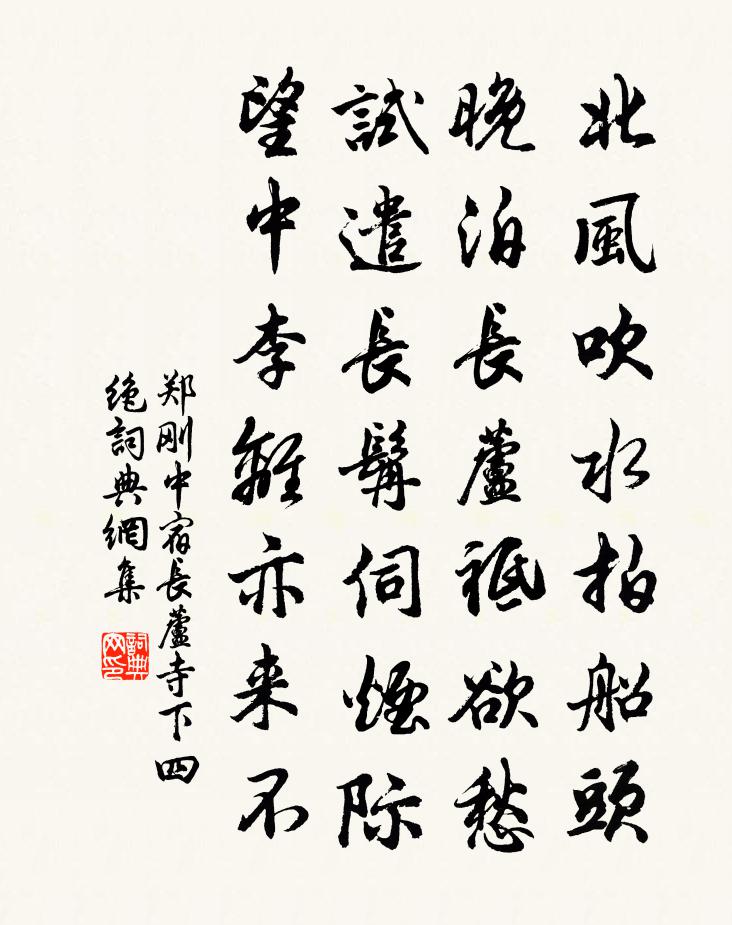 北風吹水拍船頭
晚泊長蘆祗欲愁
試遣長伺煙际
望中李離亦来不
郑刚中宿長蘆寺下四
绝詞典網集
詞典网印